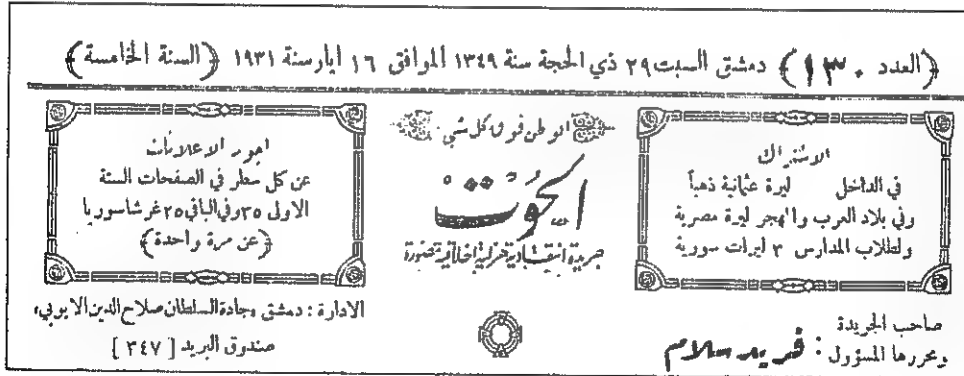 (العدد ١٣٠) دمشق السبت ٢٩ ذي الحجة سنة ١٣٤٩ الموافق ١٦ ايار سنة ١٩٣١ (السنة الخامسة)
الاشتراك
في الداخل ليرة عثمانية ذهباً
وفي بلاد العرب والمهجر ليرة مصرية
ولطلاب المدارس ٣ ليرات سورية
صاحب الجريدة
ومحررها المسؤول : فريد سلام
الوطن فوق كل شيء
الحوت
جريدة انتقادية هزلية اخلاقية مصورة
اجور الاعلانات
عن كل سطر في الصفحات الستة
الاولى ٣٥ وفي الباقي ٢٥ غرشا سوريا
(عن مرة واحدة)
الادارة : دمشق ، جادة السلطان صلاح الدين الايوبي،
صندوق البريد [ ٣٤٧ ]